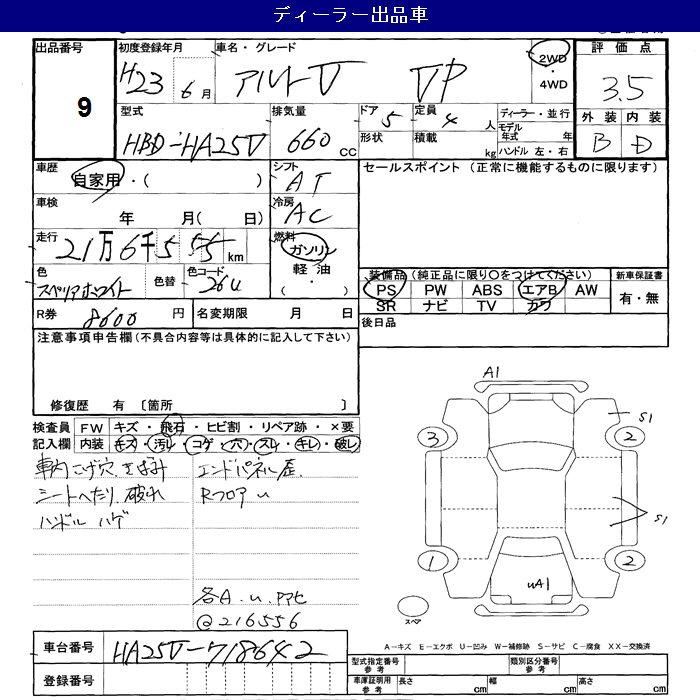 ディーラー出品車
出品番号
9
初度登録年月 H23 6月
車名・グレード アルトV VP
2WD・4WD
評価点 3.5
型式 HBD-HA25V
排気量 660cc
ドア 5
定員 4人
形状
積載 kg
ディーラー・並行
モデル年式 年
ハンドル 左・右
外装 内装
B D
車歴 自家用・( )
シフト AT
セールスポイント (正常に機能するものに限ります)
車検 年 月( 日)
冷房 AC
走行 21万6千555km
燃料 ガソリン・軽油・( )
色 スペリアホワイト
色替
色コード 26U
装備品 (純正品に限り〇をつけてください)
新車保証書
PS PW ABS エアB AW
有・無
SR ナビ TV カワ
R券 8600円
名変期限 月 日
後日品
注意事項申告欄 (不具合内容等は具体的に記入して下さい)
修復歴 有 〔箇所 〕
検査員 FW キズ・飛石・ヒビ割・リペア跡・×要
記入欄 内装 キズ・汚レ・コゲ・穴・スレ・キレ・破レ
車内こげ穴.きばみ
シートへたり.破れ
ハンドル ハゲ
エンドパネル歪.
Rフロア u
各A.u.
@216556
A1
S1
3
2
S1
1
2
uA1
スペア
A-キズ E-エクボ U-凹み W-補修跡 S-サビ C-腐食 XX-交換済
車台番号 HA25V-718642
登録番号
型式指定番号 参考
類別区分番号 参考
車庫証明用 参考
長さ cm
幅 cm
高さ cm